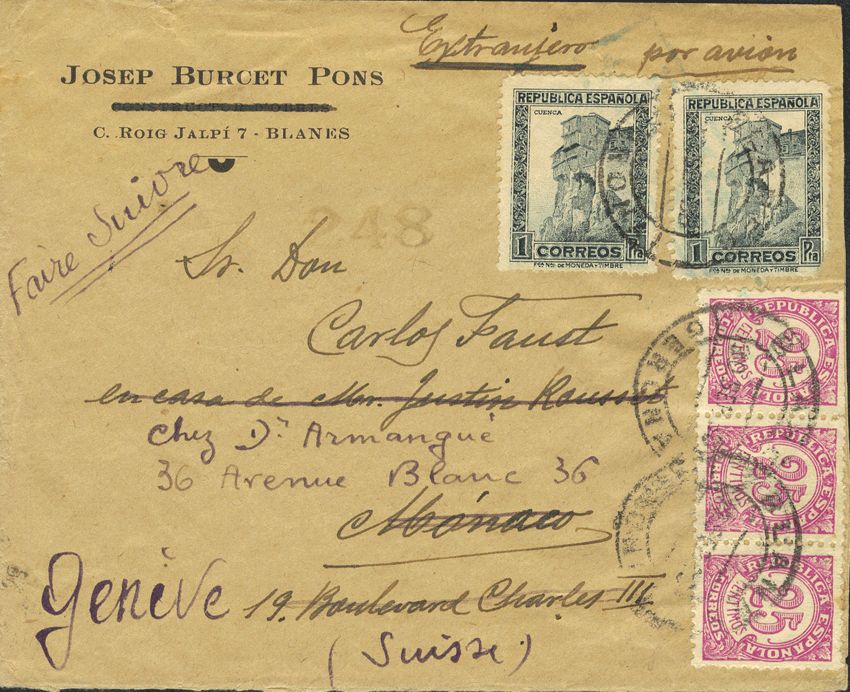 Extranjero por avión
JOSEP BURCET PONS
CONSTRUCTOR D'OBRES
C. ROIG JALPÍ 7 - BLANES
REPUBLICA ESPAÑOLA
CUENCA
1 CORREOS Pta
FCA NAL DE MONEDA Y TIMBRE
REPUBLICA ESPAÑOLA
CUENCA
1 CORREOS Pta
FCA NAL DE MONEDA Y TIMBRE
Faire Suivre
248
Sr. Don
Carlos Faust
en casa de Mr. Justin Rousset
chez Dr. Armangué
36 Avenue Blanc 36
Mónaco
Genève 19. Boulevard Charles III
(Suisse)
REPUBLICA ESPAÑOLA
25 CENTIMOS
CORREOS
REPUBLICA ESPAÑOLA
25 CENTIMOS
CORREOS
REPUBLICA ESPAÑOLA
25 CENTIMOS
CORREOS
GERONA